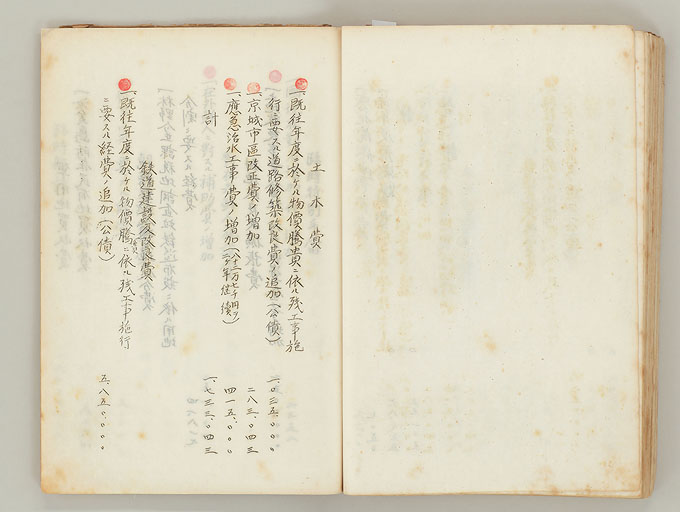 土木費
一、既往年度ニ於ケル物價騰貴ニ依ル残工事施
行ニ要スル道路修築改良費ノ追加(公債) 一、〇三五、〇〇〇
一、京城市區改正費ノ増加 二八三、〇四三
一、應急治水工事費ノ増加(八十三万七千円ヲ二ケ年継続) 四一五、〇〇〇
計 一、七三三、〇四三
鉄道建設及改良費
一、既往年度ニ於ケル物價騰貴ニ依ル残工事施行
ニ要スル経費ノ追加(公債) 五、八五〇、〇〇〇